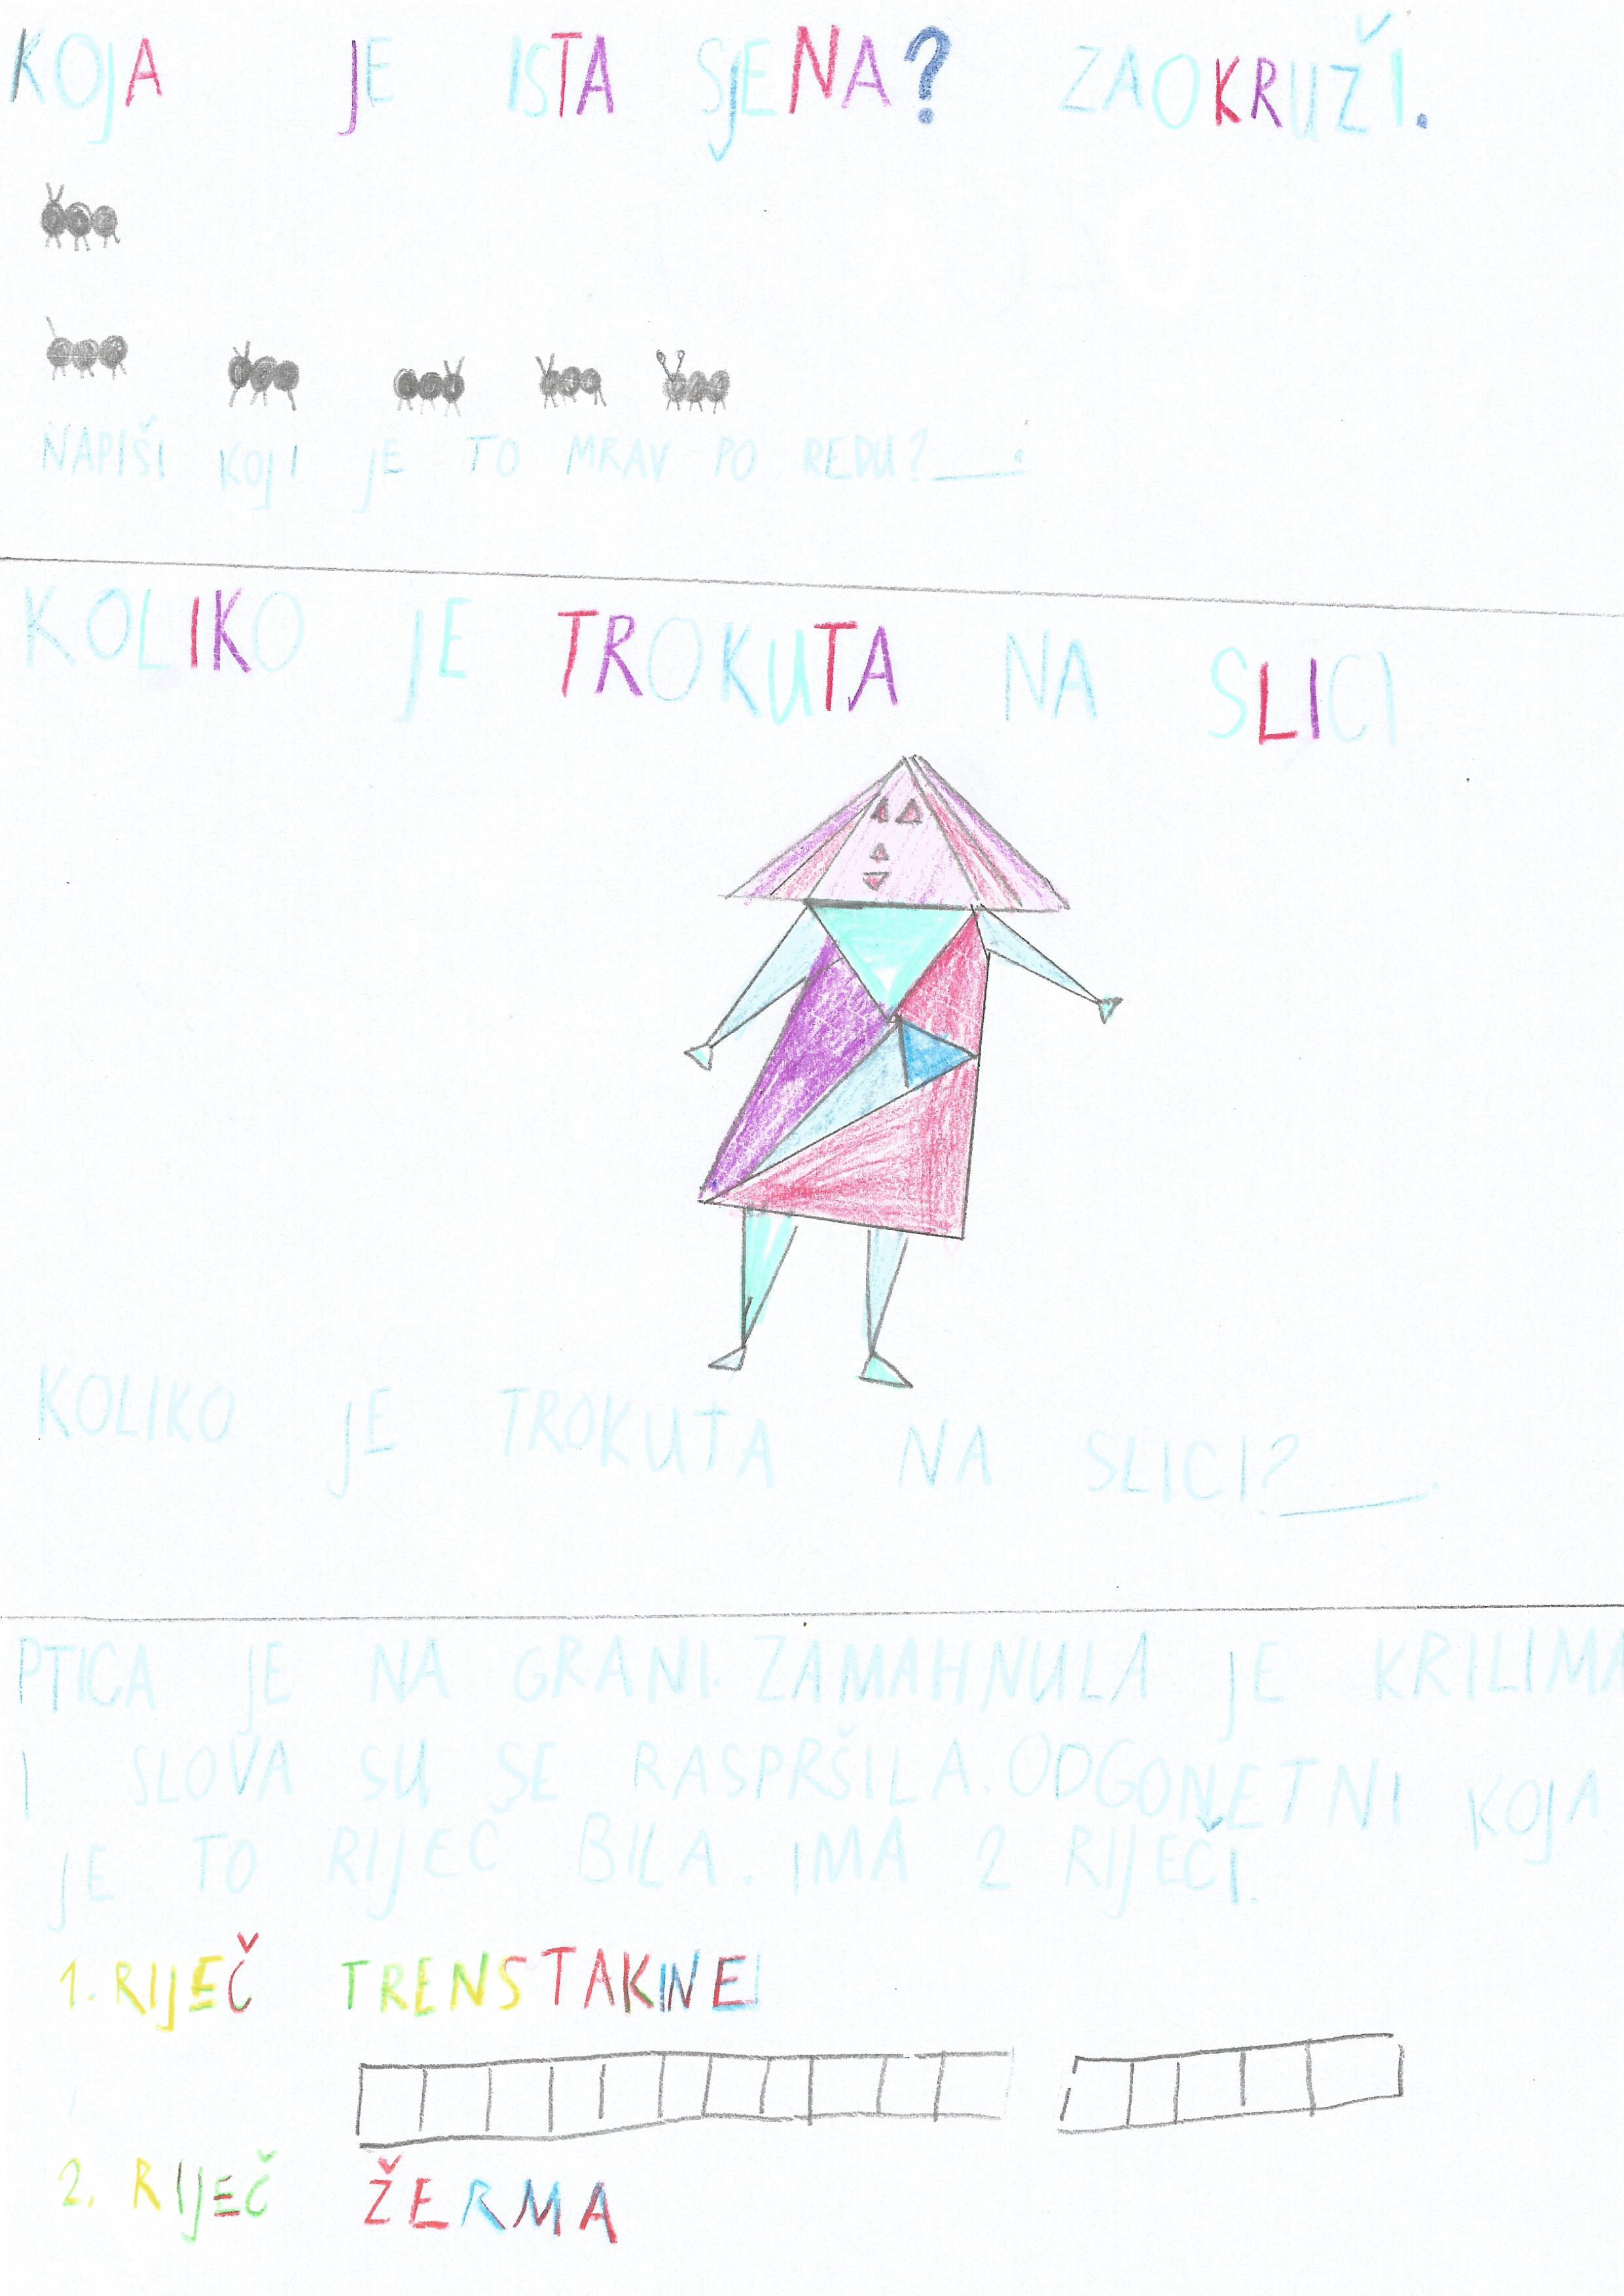 KOJA JE ISTA SJENA? ZAOKRUŽI.
NAPIŠI KOJI JE TO MRAV PO REDU?___.
KOLIKO JE TROKUTA NA SLICI
KOLIKO JE TROKUTA NA SLICI?___.
PTICA JE NA GRANI. ZAMAHNULA JE KRILIMA
I SLOVA SU SE RASPRŠILA. ODGONETNI KOJA
JE TO RIJEČ BILA. IMA 2 RIJEČI.
1. RIJEČ TRENSTAKINEI
2. RIJEČ ŽERMA